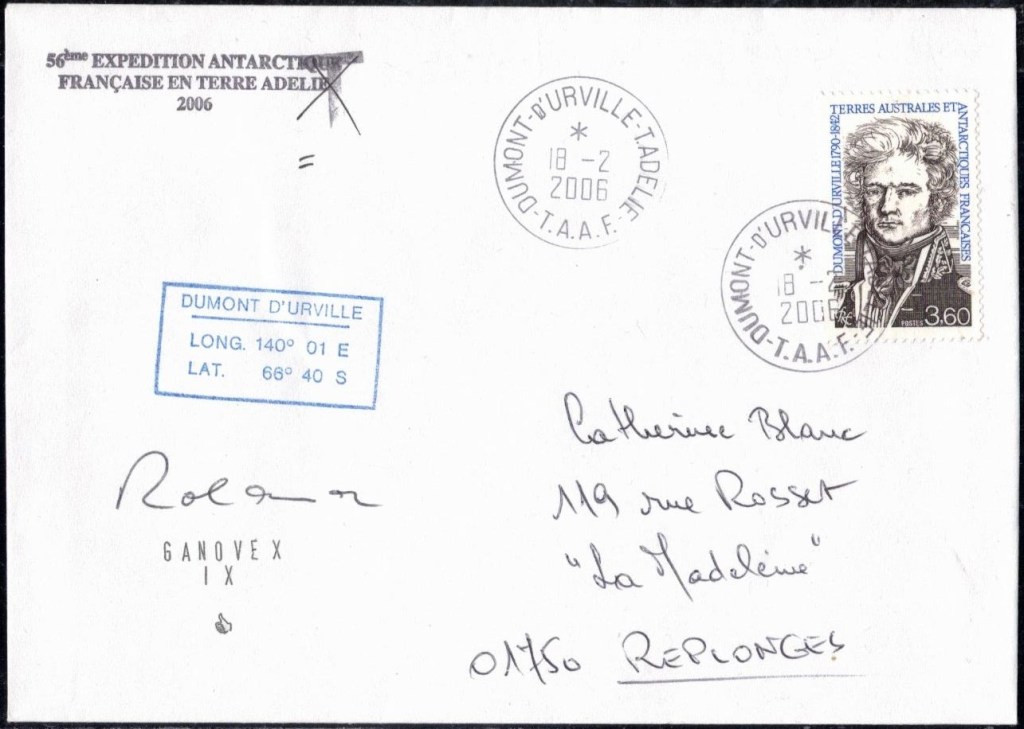 56ème EXPEDITION ANTARCTIQUE
FRANÇAISE EN TERRE ADELIE
2006
=
DUMONT-D'URVILLE-T.ADELIE
*
18 -2
2006
-T.A.A.F.-
TERRES AUSTRALES ET
ANTARCTIQUES FRANCAISES
DUMONT D'URVILLE 1790-1842
POSTES 3,60
DUMONT-D'URVILL
*
18 -2
2006
-T.A.A.F.-
DUMONT D'URVILLE
LONG. 140° 01 E
LAT. 66° 40 S
GANOVEX
IX
Catherine Blanc
119 rue Rosset
"La Madeleine"
01750 REPLONGES